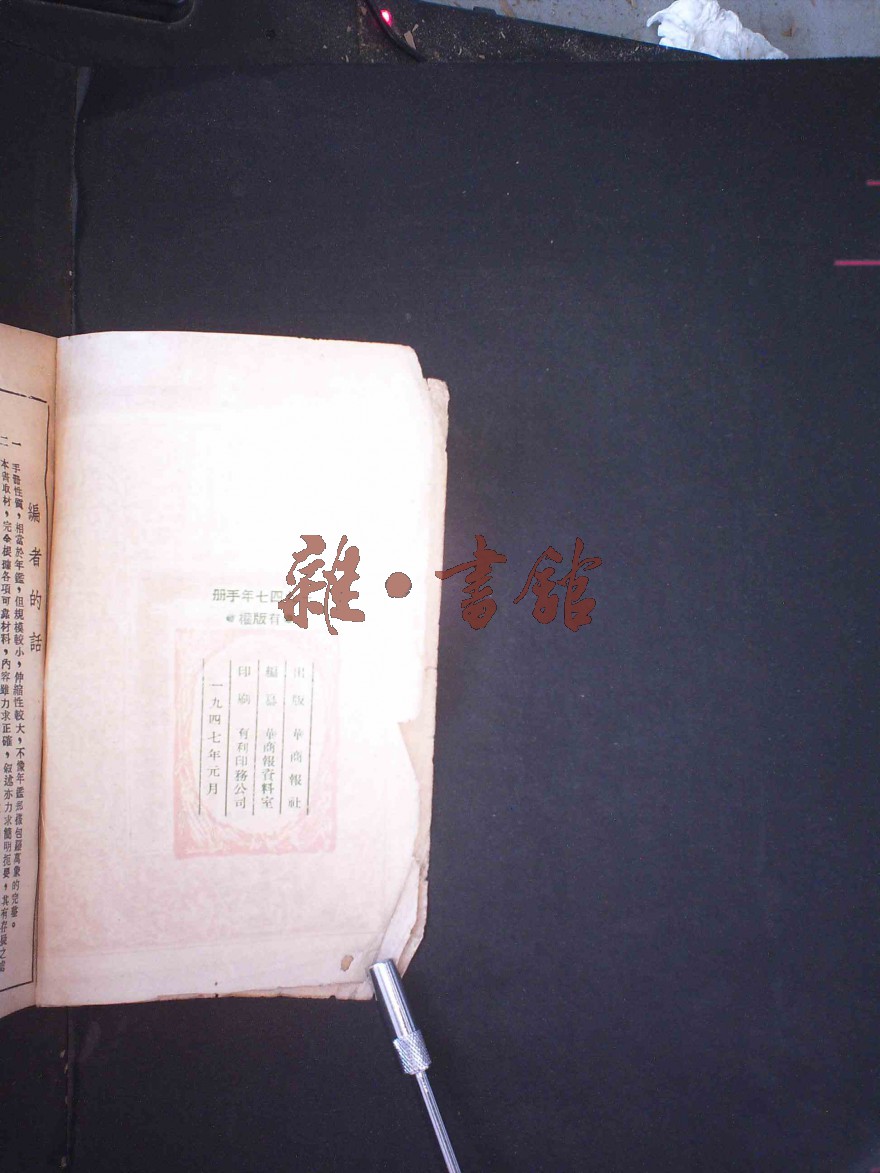 雜·書館
四七年手册
有版權
出版 華商報社
編纂 華商報資料室
印刷 有利印務公司
一九四七年元月
編者的話
一
手册性質，相當於年鑑，但規模較小，伸縮性較大，不像年鑑那樣包羅萬象的完備。
二
本書取材，完全根據各項可靠材料，內容雖力求正確，叙述亦力求簡明扼要，其有存疑之處